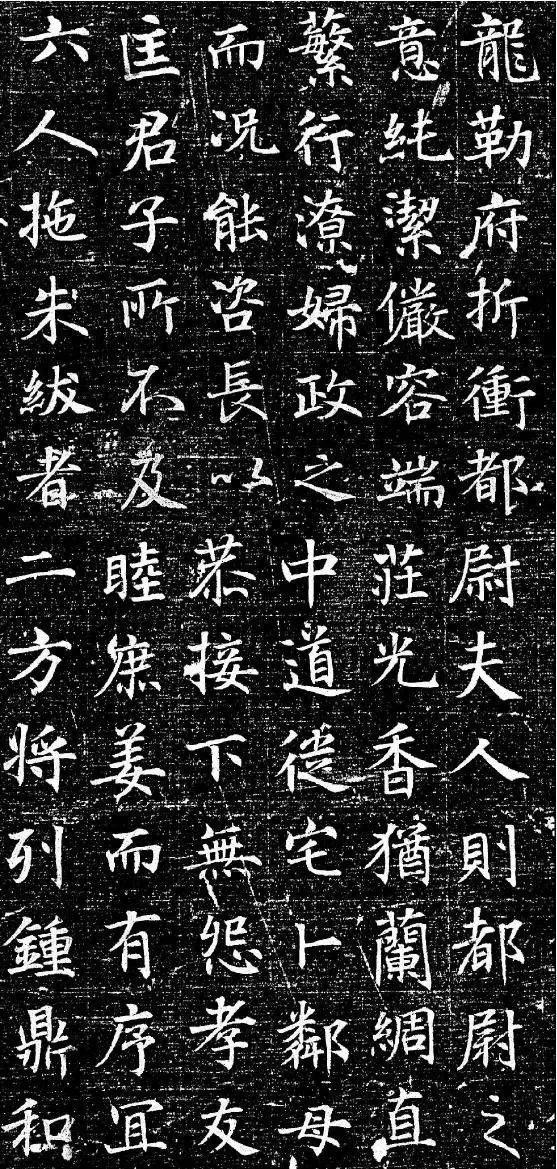 龍勒府折衝都尉夫人則都尉之
意純潔儼容端荘光香猶蘭綢直
蘩行潦婦政之中道徙宅卜鄰母
而况能咨長以恭接下無怨孝友
匡君子所不及睦庶姜而有序冝
六人拖朱紱者二方将列鍾鼎和